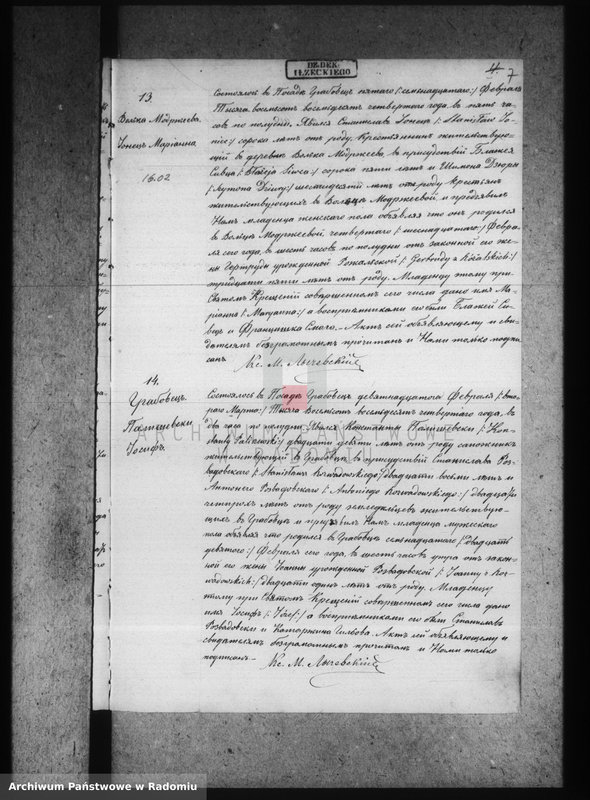 DZ. DEK.
IŁŻECKIEGO
7
13.
Волька Модржева.
Марианна
16.02
Состоялось в Посаде Грабовец пятаго /:семнадцатаго:/ Февраля
Тысяча восемьсот восемдесят четвертаго года, в пять ча-
сов по полудни. Явился Станислав /:Stanisław
сорока лет от роду, крестьянин жительствую-
щий в деревне Волька Модржева, в присутствии Блажея
/:Błażeja сорока пяти лет и Шимона
/:Szymona шестидесяти лет от роду крестьян
жительствующих в Вольца Модржевой и предъявил
Нам младенца женского пола объявляя что он родился
в Вольца Модржевой, четвертаго /:шестнадцатаго:/ Февра-
ля сего года, в шесть часов по полудни от законной его же-
ны Гертруды урожденной
тридцати пяти лет от роду. Младенцу этому при
Святом Крещении совершенном сего числа дано имя Ма-
рианна /:Maryanna:/ а восприемниками его были Блажей
и Францишка Акт сей объявляющему и сви-
детелям безграмотным прочитан и Нами только подпи-
сан.
Кс. М. Лычевский
14.
Грабовец.
Палишевски
Иосиф.
Состоялось в Посаде Грабовец девятнадцатаго Февраля /:вто-
раго Марта:/ Тысяча Восемьсот восемдесят четвертаго года, в
два часа по полудни. Явился Константы Палишевски /:Kon-
stanty двадцати девяти лет от роду сапожник
жительствующий в Грабовце в присутствии Станислава Роз-
вадовского /:Stanisława Rozwadowskiego:/ двадцати восьми лет и
Антонего Розвадовского /:Antoniego Rozwadowskiego:/ двадцати
четырех лет от роду земледельцев жительствую-
щих в Грабовце и предъявил Нам младенца мужескаго
пола объявляя что родился в Грабовце семнадцатаго /:двадцать
девятаго:/ Февраля сего года, в шесть часов утра от закон-
ной его жены Іоанны урожденной Розвадовской /:Joanny z Roz-
wadowskich:/ двадцати один лет от роду. Младенцу
этому при Святом Крещении совершенном сего числа дано
имя Иосиф /:Józef:/ а восприемниками его были Станислав
Розвадовски и Катаржина Акт сей объявляющему и
свидетелям безграмотным прочитан и Нами только
подписан.
Кс. М. Лычевский
Archiwum Państwowe w Radomiu